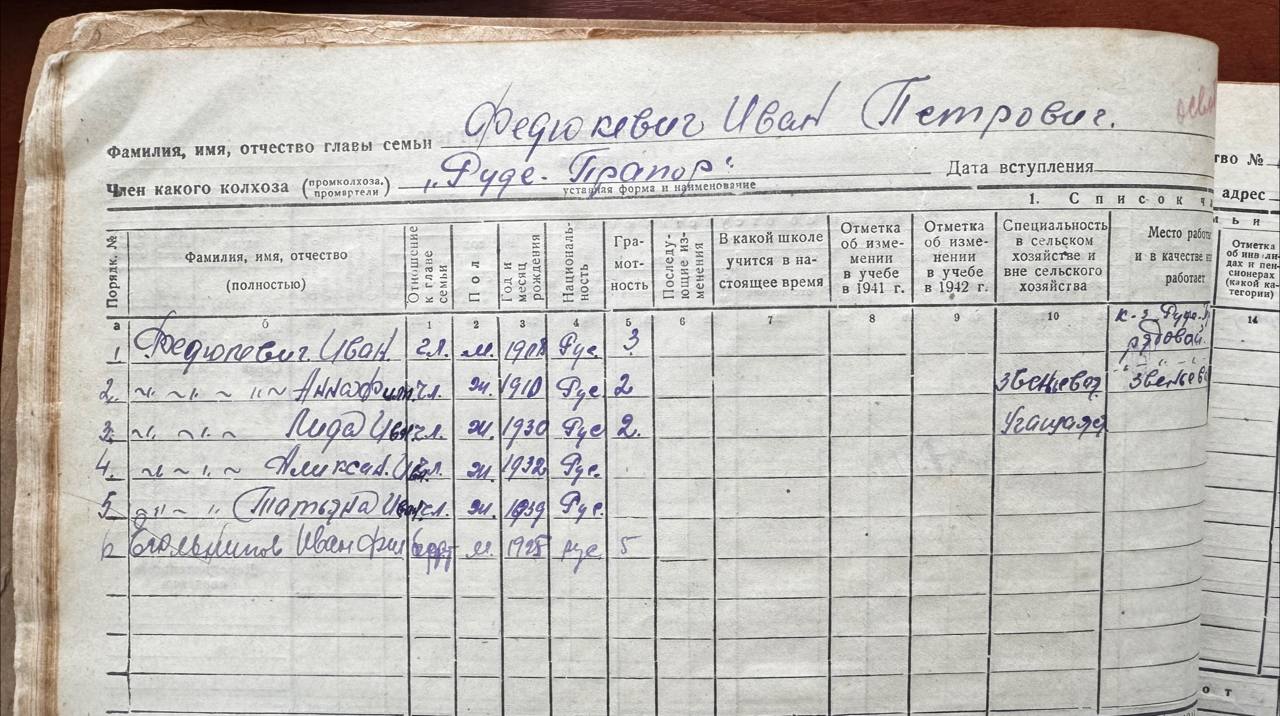 Федюкевич Иван Петрович.
Фамилия, имя, отчество главы семьи
Член какого колхоза (промколхоза, промартели) „Руде-Прапор“
уставная форма и наименование
Дата вступления
тво №
адрес
1. Список ч
Порядк. №
Фамилия, имя, отчество (полностью)
Отношение к главе семьи
Пол
Год и месяц рождения
Националь-ность
Гра-мот-ность
Последу-ющие из-менения
В какой школе учится в на-стоящее время
Отметка об изме-мении в учебе в 1941 г.
Отметка об изме-нении в учебе в 1942 г.
Специальность в сельском хозяйстве и вне сельского хозяйства
Место работ и в качестве работает
Отметка об инвали-дах и пен-сионерах (какой ка-тегории)
а б 1 2 3 4 5 6 7 8 9 10 14
к-з Руде.
1 Федюкевич Иван гл. м. 1908 Рус 3 рядовой
2. Анна чл. ж. 1910 Рус 2
3. Лида Иван чл. ж. 1930 Рус 2.
4. Алексан. чл. ж. 1932 Рус.
5 Татьяна Иван чл. ж. 1939 Рус.
6 Иван м. 1925 рус 5
от